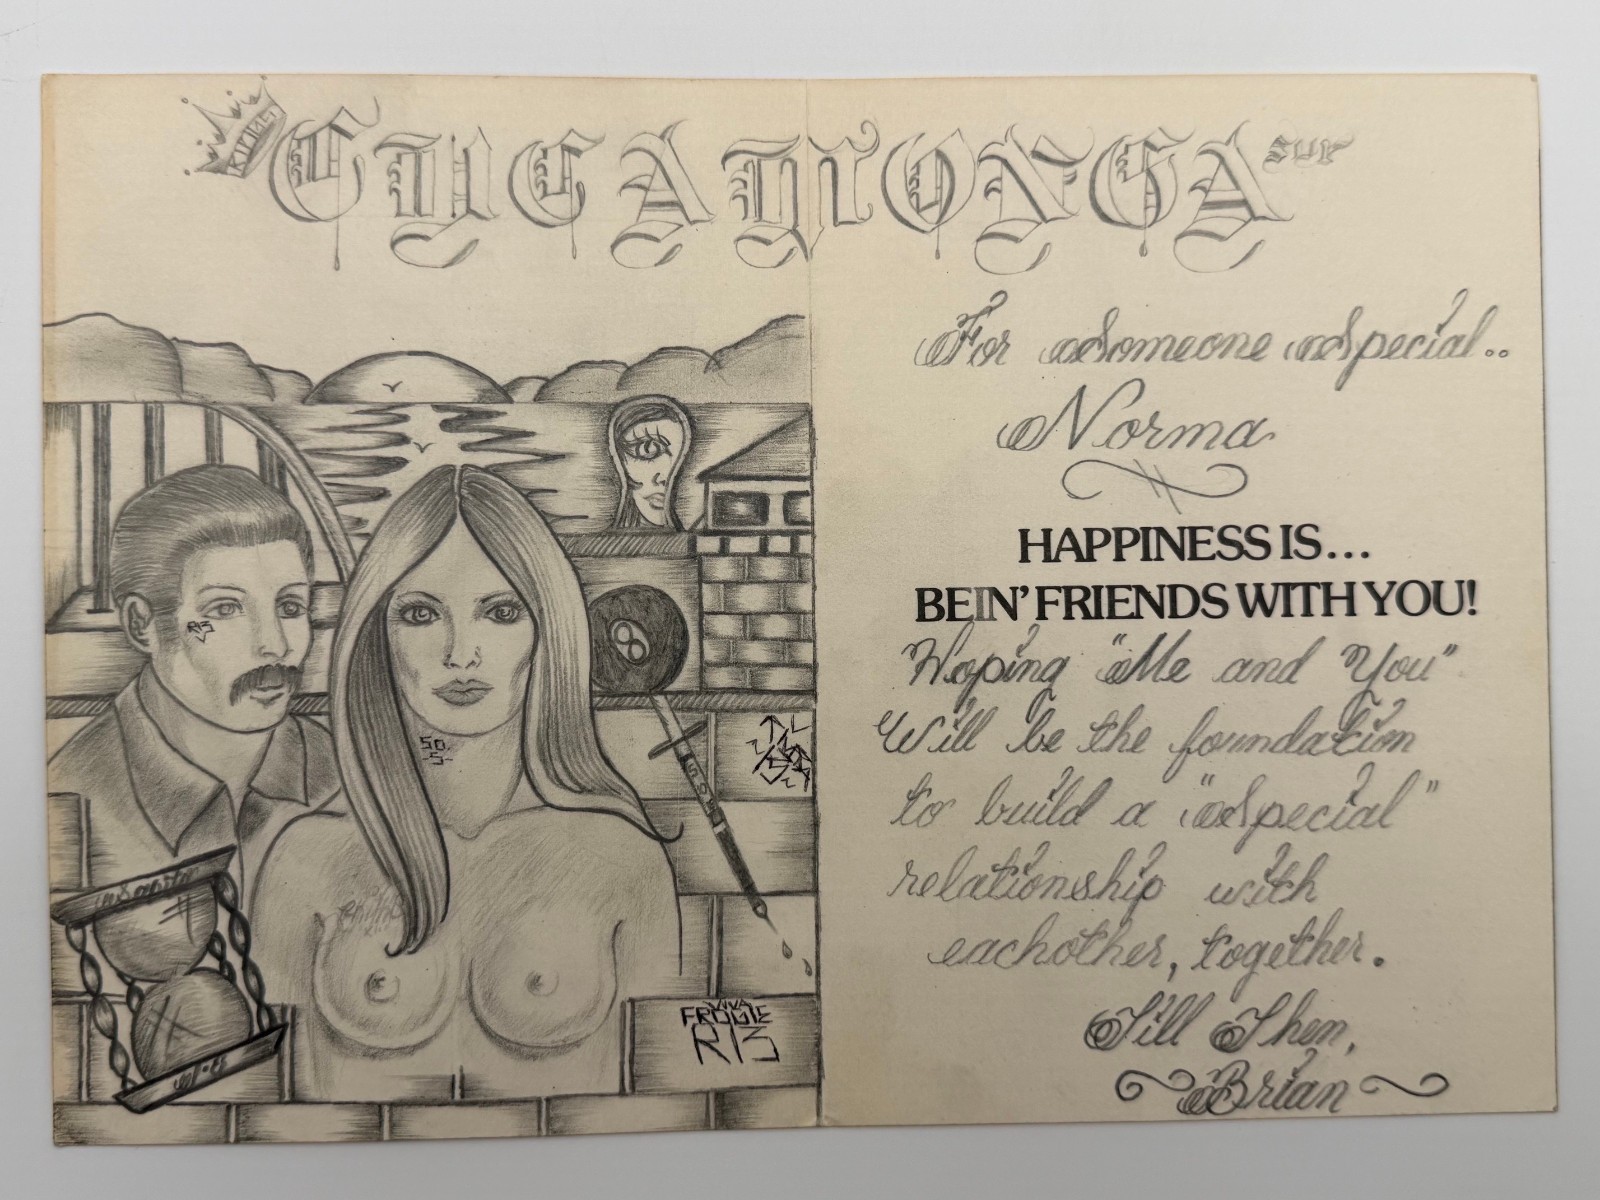 KINGS
CUCAMONGA SUR
For Someone Special..
Norma
HAPPINESS IS...
BEIN' FRIENDS WITH YOU!
Hoping "Me and You"
Will be the foundation
to build a "Special"
relationship with
eachother, together.
Till Then,
Brian
R13
8
SO.
S.
VIVA
FROGIE
R13